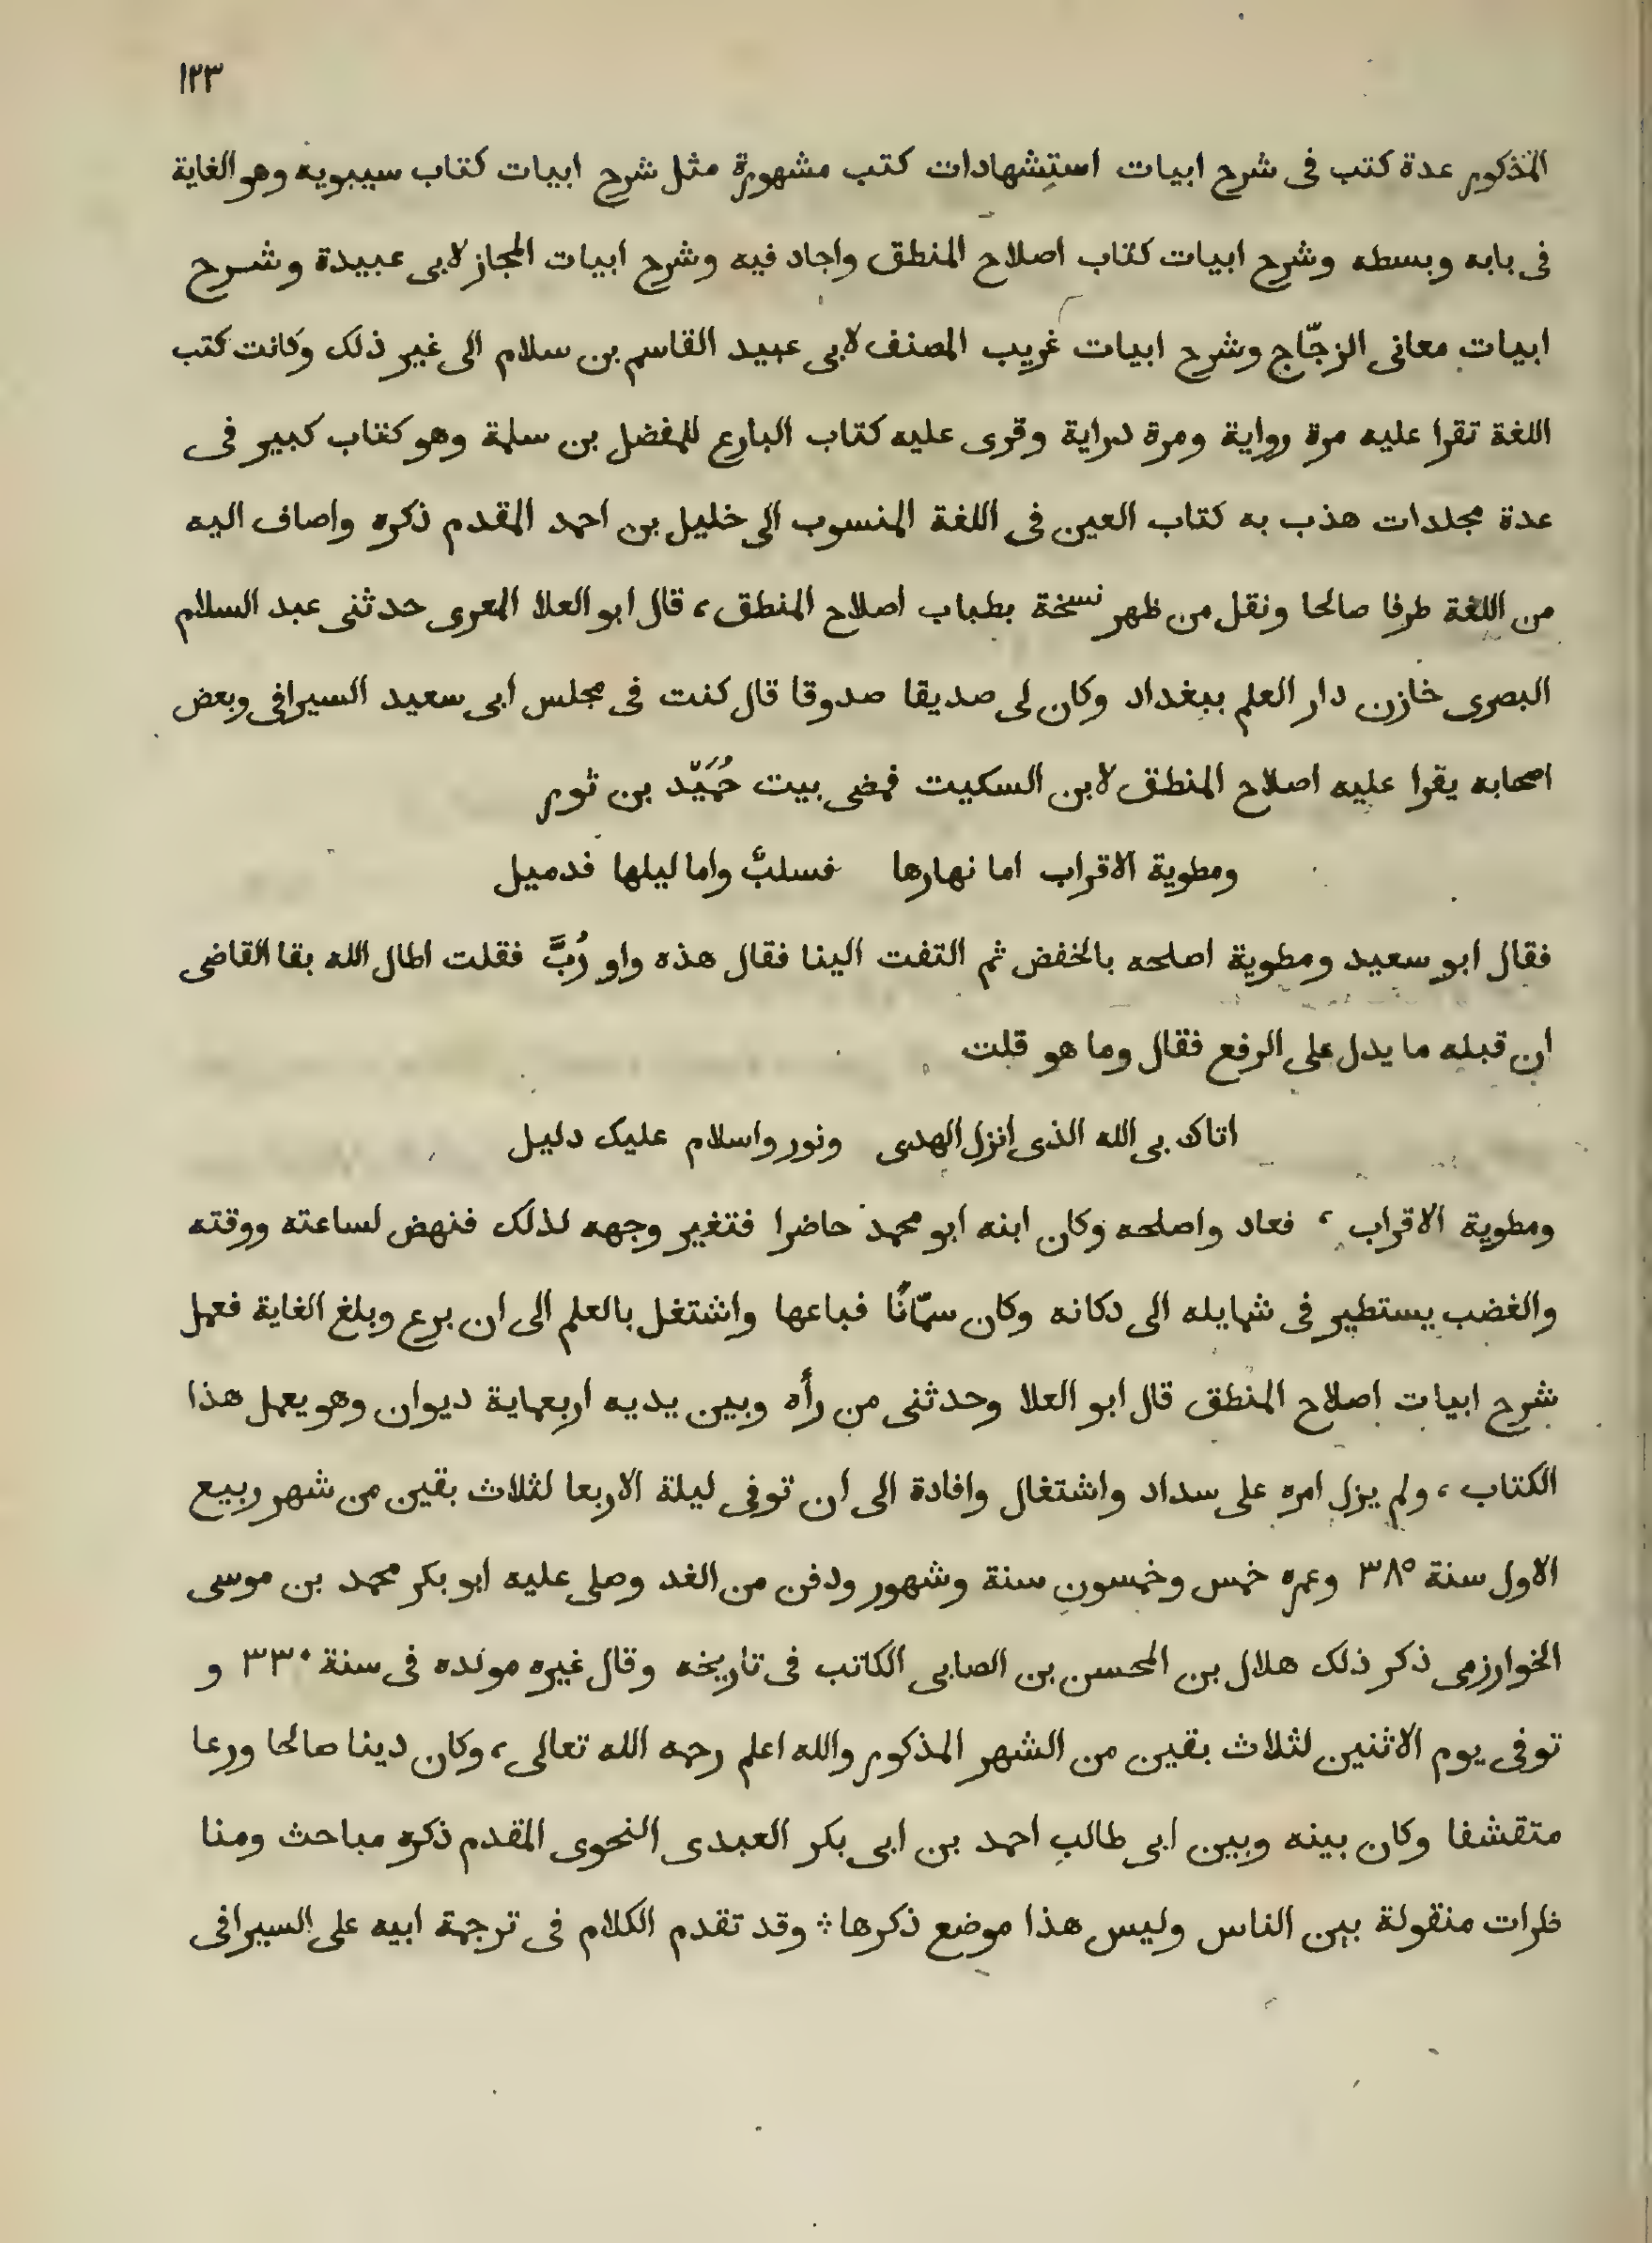 ١٢٣
المذكور عدة كتب فى شرح ابيات استشهادات كتب مشهورة مثل شرح ابيات كتاب سيبويه وهو الغاية
فى بابه وبسطه وشرح ابيات كتاب اصلاح المنطق واجاد فيه وشرح ابيات المجاز لابى عبيدة وشرح
ابيات معانى الزجّاج وشرح ابيات غريب المصنف لابى عبيد القاسم بن سلام الى غير ذلك وكانت كتب
اللغة تقرا عليه مرة رواية ومرة دراية وقرى عليه كتاب البارع للمفضل بن سلمة وهو كتاب كبير فى
عدة مجلدات هذب به كتاب العين فى اللغة المنسوب الى خليل بن احمد المقدم ذكره واصاف اليه
من اللغة طرفا صالحا ونقل من ظهر نسخة بطباب اصلاح المنطق، قال ابو العلا المعرى حدثنى عبد السلام
البصرى خازن دار العلم ببغداد وكان لى صديقا صدوقا قال كنت فى مجلس ابى سعيد السيرافى وبعض
اصحابه يقرا عليه اصلاح المنطق لابن السكيت فمضى بيت حُمَيّد بن ثور
ومطوية الاقراب اما نهارها فسلبٌ واما ليلها فدميل
فقال ابو سعيد ومطوية اصلحه بالخفض ثم التفت الينا فقال هذه واو رُبَّ فقلت اطال الله بقا القاضى
ان قبله ما يدل على الرفع فقال وما هو قلت
اتاك بى الله الذى انزل الهدى ونور واسلام عليك دليل
ومطوية الاقراب، فعاد واصلحه وكان ابنه ابو محمد حاضرا فتغير وجهه لذلك فنهض لساعته ووقته
والغضب يستطير فى شمايله الى دكانه وكان سمّانًا فباعها واشتغل بالعلم الى ان برع وبلغ الغاية فعمل
شرح ابيات اصلاح المنطق قال ابو العلا وحدثنى من رأه وبين يديه اربعماية ديوان وهو يعمل هذا
الكتاب، ولم يزل امره على سداد واشتغال وافادة الى ان توفى ليلة الاربعا لثلاث بقين من شهر ربيع
الاول سنة ٣٨٥ وعمره خمس وخمسون سنة وشهور ودفن من الغد وصلى عليه ابو بكر محمد بن موسى
الخوارزمى ذكر ذلك هلال بن المحسن بن الصابى الكاتب فى تاريخه وقال غيره مولده فى سنة ٣٣٠ و
توفى يوم الاثنين لثلاث بقين من الشهر المذكور والله اعلم رحمه الله تعالى، وكان دينا صالحا ورعا
متقشفا وكان بينه وبين ابى طالب احمد بن ابى بكر العبدى النحوى المقدم ذكره مباحث ومنا
ظرات منقولة بين الناس وليس هذا موضع ذكرها ⁘ وقد تقدم الكلام فى ترجمة ابيه على السيرافى